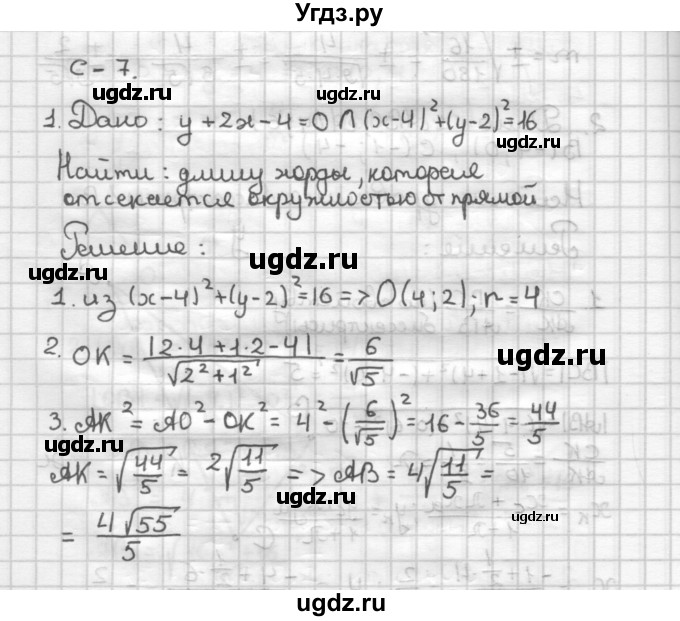 Угдз.ру
С - 7.
ugdz.ru
ugdz.ru
1. Дано: y + 2x - 4 = 0 ∩ (x-4)² + (y-2)² = 16
ugdz.ru
ugdz.ru
Найти: длину хорды, которая
отсекается окружностью от прямой
ugdz.ru
Решение:
ugdz.ru
ugdz.ru
1. из (x-4)² + (y-2)² = 16 => O(4; 2); r = 4
2. OK = |2·4 + 1·2 - 4| / √(2² + 1²) = 6/√5
ugdz.ru
ugdz.ru
3. AK² = AO² - OK² = 4² - (6/√5)² = 16 - 36/5 = 44/5
AK = √(44/5) = 2√(11/5) => AB = 4√(11/5) =
ugdz.ru
ugdz.ru
= 4√55/5
ugdz.ru
ugdz.ru